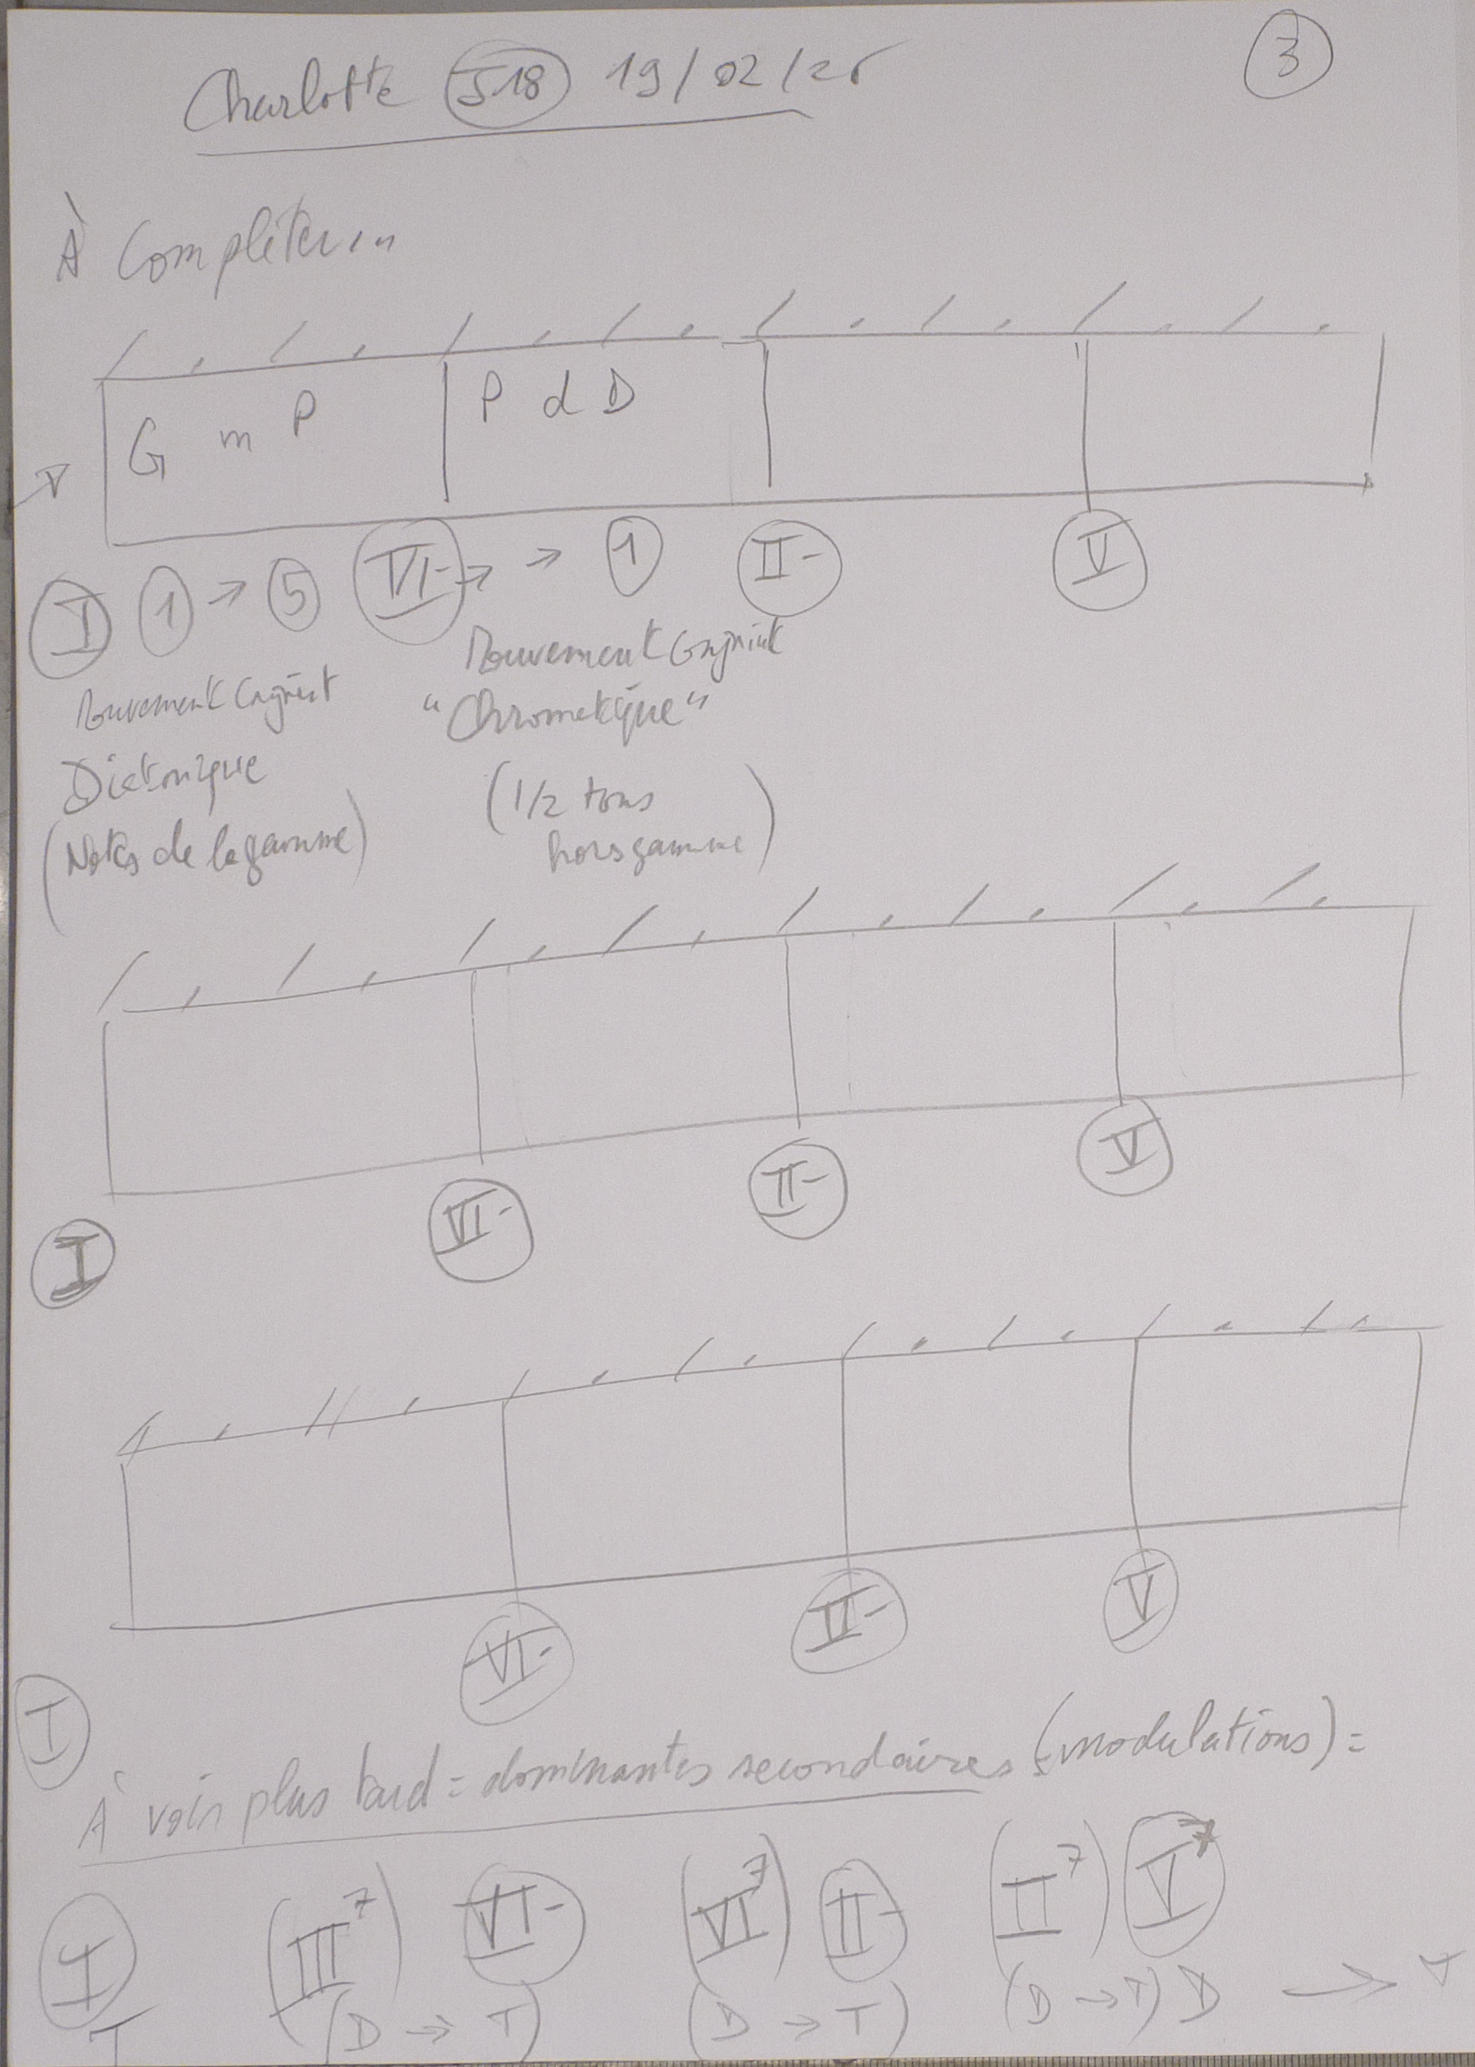 Charlotte J18 19/02/26 3
À Compléter...
/ . / . / . / . / . / . / . / .
G m P P d D
I 1 → 5 VI- → → 1 II- V
Mouvement Conjoint Mouvement Conjoint
Diatonique "Chromatique"
(Notes de la gamme) (1/2 tons
hors gamme)
/ . / . / . / . / . / . / . / .
I VI- II- V
/ . // . / . / . / . / . / . / .
I VI- II- V
À voir plus tard = dominantes secondaires (modulations) =
I (III7) VI- (VI7) II- (II7) V7
T (D → T) (D → T) (D → T) D → T